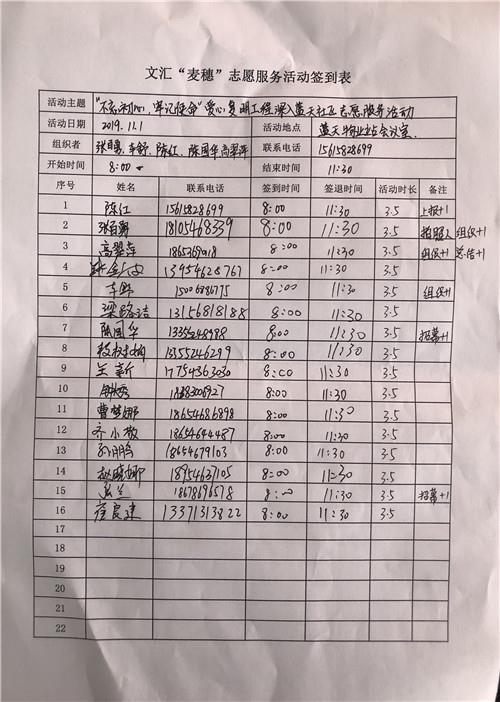 文汇“麦穗”志愿服务活动签到表
活动主题 “不忘初心，牢记使命”爱心复明工程深入蓝天社区志愿服务活动
活动日期 2019.11.1 活动地点 蓝天物业站会议室
组织者 李舒、陈红、陈国华 高翠萍 联系电话 15615828699
开始时间 8:00 结束时间 11:30
序号 姓名 联系电话 签到时间 签退时间 活动时长 备注
1 陈红 15615828699 8:00 11:30 3.5 上报+1
2 18105468339 8:00 11:30 3.5 拍照人 组织+1
3 高翠萍 8:00 11:30 3.5 组织+1 总结+1
4 13954628767 8:00 11:30 3.5
5 李舒 8:00 11:30 3.5 组织+1
6 梁路洁 13156818188 8:00 11:30 3.5
7 陈国华 8:00 11:30 3.5 招募+1
8 13355246299 8:00 11:30 3.5
9 17754363030 8:00 11:30 3.5
10 8:00 11:30 3.5
11 曹梦娜 18654686898 8:00 11:30 3.5
12 齐小敏 13654644487 8:00 11:30 3.5
13 18654679103 8:00 11:30 3.5
14 赵晓娜 18954637105 8:00 11:30 3.5
15 18678696578 8:00 11:30 3.5 招募+1
16 崔良建 13371313822 8:00 11:30 3.5
17
18
19
20
21
22